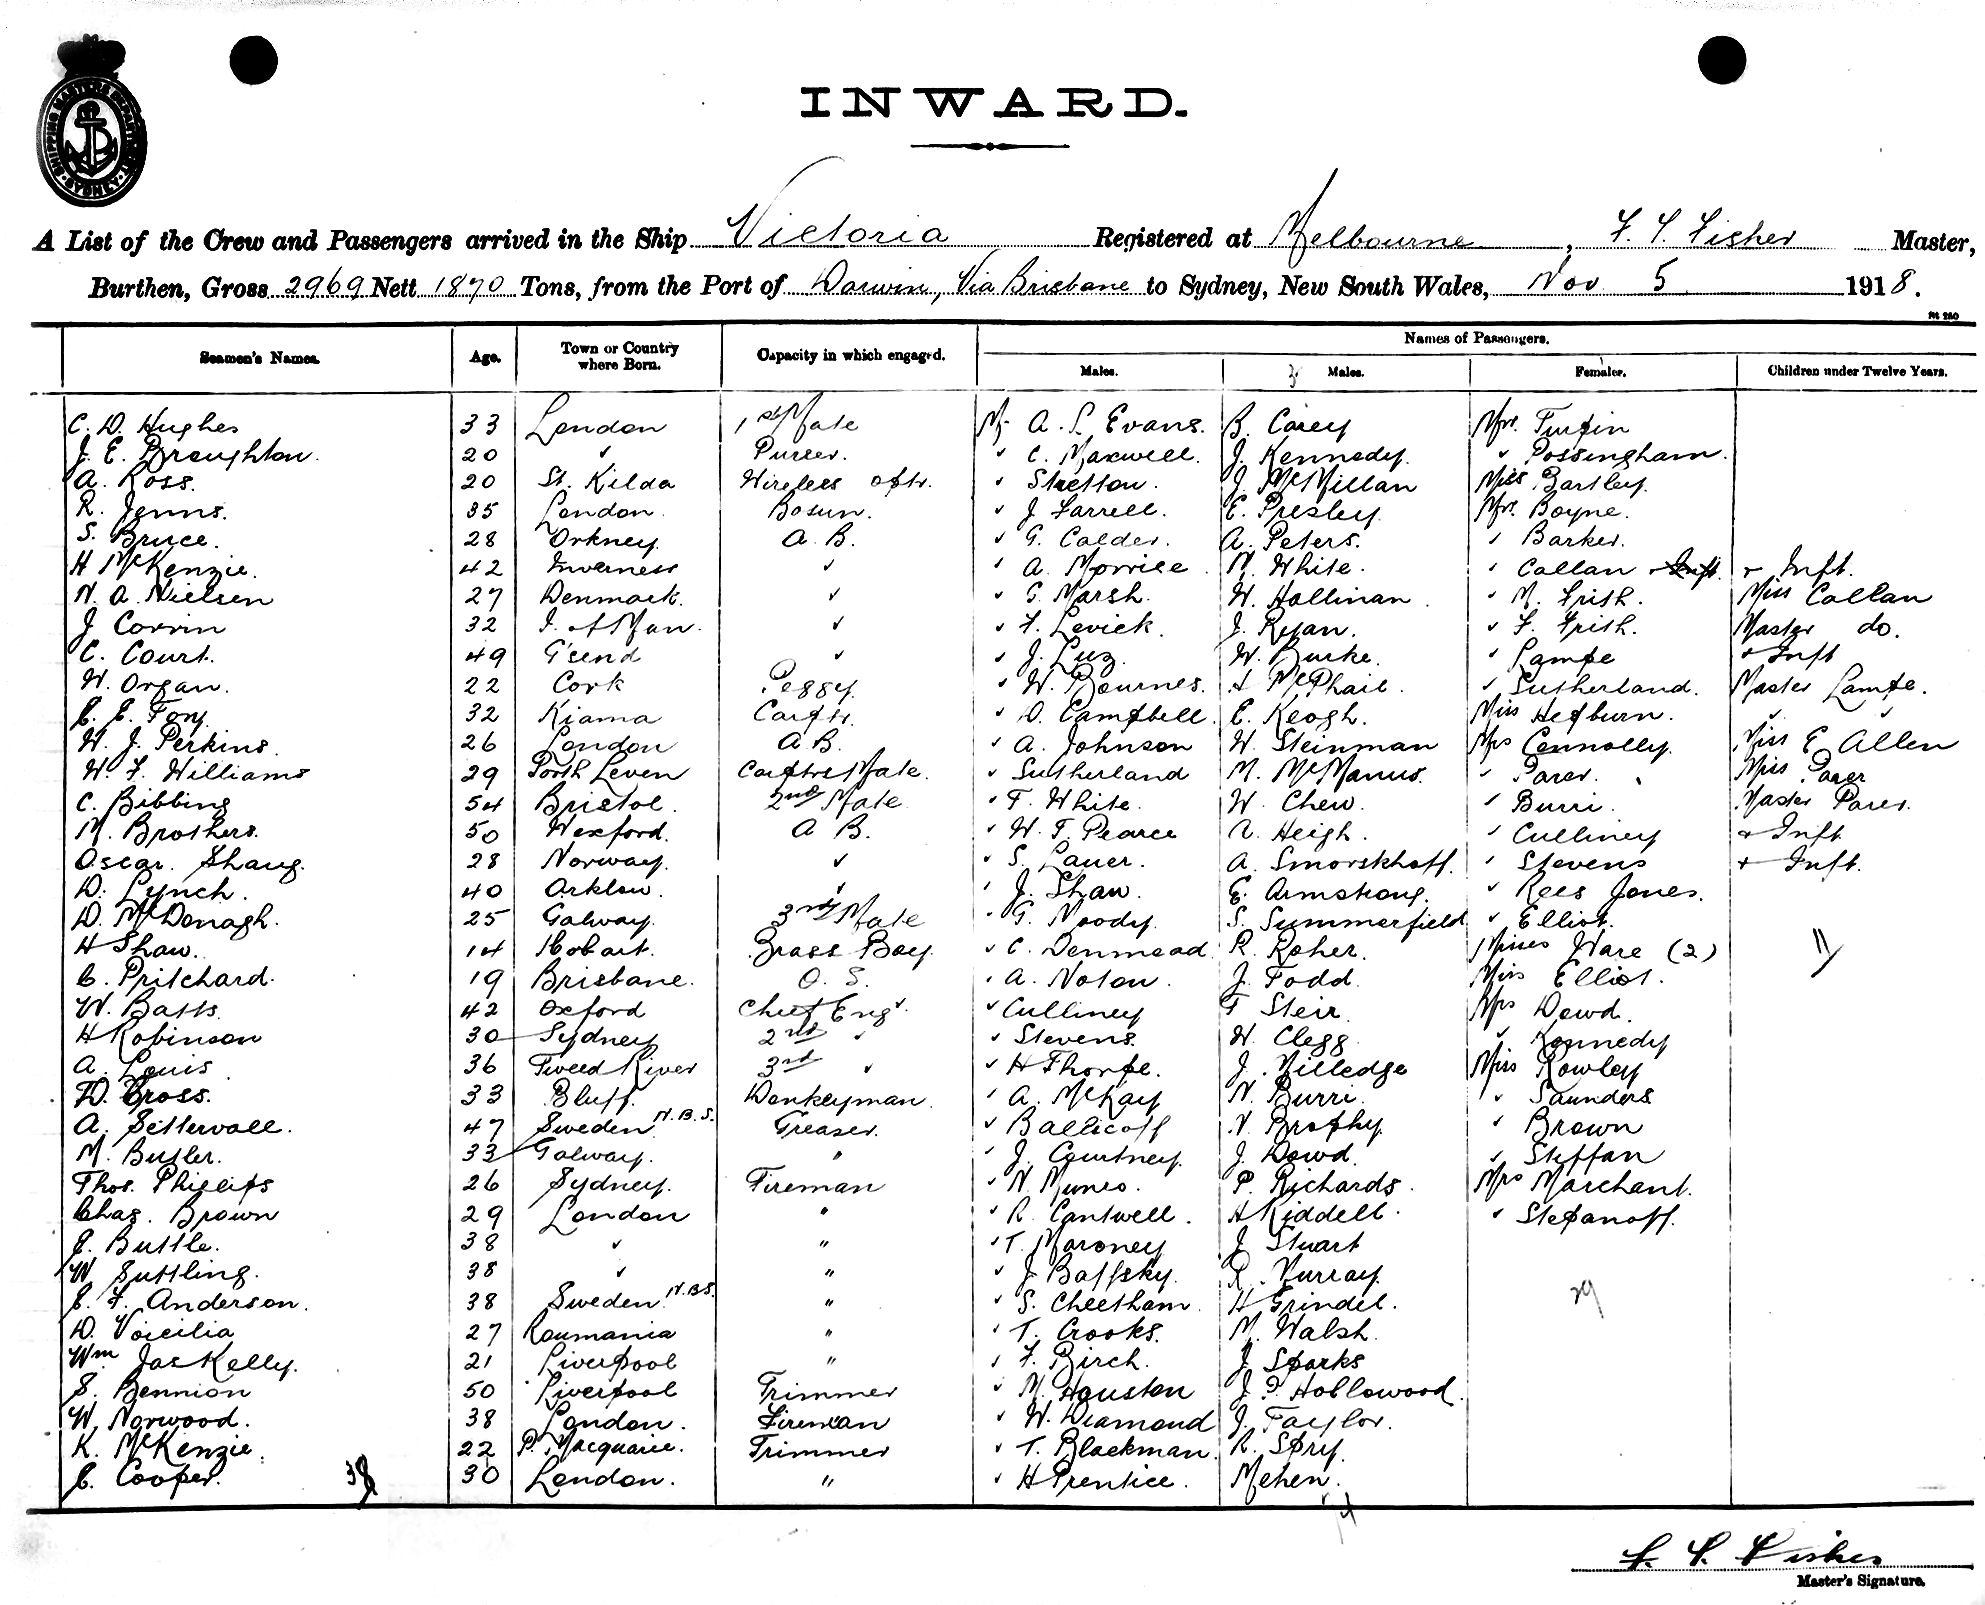 SHIPPING MASTERS DEPARTMENT SYDNEY
INWARD.
A List of the Crew and Passengers arrived in the Ship Victoria Registered at Melbourne, F. S. Fisher Master,
Burthen, Gross 2969 Nett 1870 Tons, from the Port of Darwin, Via Brisbane to Sydney, New South Wales, Nov 5 1918.
Seamen's Names. Age. Town or Country where Born. Capacity in which engaged. Names of Passengers.
Males. Males. Females. Children under Twelve Years.
C. D. Hughes 33 London 1st Mate Mr A. S. Evans. B. Carey Mrs. Turpin
J. E. Broughton. 20 " Purser. " C. Maxwell. J. Kennedy. " Possingham.
A. Ross. 20 St. Kilda Wireless optr. " Stretton. J. McMillan Miss Bartley.
R. Jenns. 35 London. Bosun. " J. Farrell. E. Presley. Mrs. Boyne.
S. Bruce. 28 Orkney. A. B. " G. Calder. A. Peters. " Barker.
H McKenzie. 42 Inverness " " A. Morrice. M. White. " Callan + Inft.
N. A. Nielsen 27 Denmark. " " G. Marsh. W. Hallinan. " M. Frish. Miss Callan
J Corrin 32 I. of Man. " " F. Levick. J. Ryan. " F. Frish. Master do.
C. Court. 49 G'send " " J. Luz. W. Burke. " Lampe + Inft
W. Organ. 22 Cork Peggy. " W. Bournes. A McPhail. " Sutherland. Master Lampe.
C. E. Foy. 32 Kiama Carptr. " D. Campbell. E. Keogh. Miss Hepburn. " "
W. J. Perkins. 26 London A B. " A. Johnson W. Steinman Mrs Connolly. Miss E Allen
W. F. Williams 29 Porth Leven Carptrs Mate. " Sutherland M. McManus. " Parer. Miss Parer
C. Bibbing 54 Bristol. 2nd Mate " F. White. W. Chew. " Burri. Master Parer.
M. Brothers. 50 Wexford. A B. " W. T. Pearce R. Heigh. " Culliney + Inft.
Oscar. Shaug. 28 Norway. " " S. Lauer. A. Smorskhoff. " Stevens + Inft.
D. Lynch. 40 Arklow. " " J. Shaw. E. Armstrong. " Rees Jones.
D. McDonagh. 25 Galway. 3rd Mate " G. Moody. S. Summerfield " Elliot.
H Shaw. 14 Hobart. Brass Boy. " C. Denmead R. Roher. Misses Ware (2) 11
C. Pritchard. 19 Brisbane. O. S. " A. Noton. J. Todd. Miss Elliot.
W. Batts. 42 Oxford Chief Engr. " Culliney F Steir. Mrs Dowd.
H Robinson 30 Sydney 2nd " " Stevens. W. Clegg. " Kennedy
A. Louis. 36 Tweed River 3rd " " H Thorpe. J. Milledge Miss Rowley
D. Cross. 33 Bluff. Donkeyman. " A. McKay N. Burri. " Saunders
A. Settervall. 47 Sweden N.B.S. Greaser. " Ballicoff N. Brophy. " Brown
M. Butler. 33 Galway. " " J. Courtney. J. Dowd. " Steffan
Thos. Phillips 26 Sydney. Fireman " N. Munro. P. Richards. Mrs Marchant.
Chas. Brown 29 London " " R. Cantwell. H Riddell. " Stepanoff.
J. Buttle. 38 " " " T. Maroney J Stuart
W Suttling. 38 " " " J Baffsky. R. Murray.
C. F. Anderson. 38 Sweden. N.B.S. " " S. Cheetham. H Grindel. 29
D. Voicilia 27 Roumania " " T. Crooks. M. Walsh.
Wm Jas Kelly. 21 Liverpool " " F. Birch. J Sparks
S. Bennion 50 Liverpool Trimmer " M. Houston J. P. Hollowood.
W. Norwood. 38 London. Fireman " W. Diamond J. Taylor.
K. McKenzie. 22 P. Macquarie. Trimmer " T. Blackman. R. Spry.
C. Cooper. 38 30 London. " " H Prentice. Mehen.
F. S. Fisher
Master's Signature.